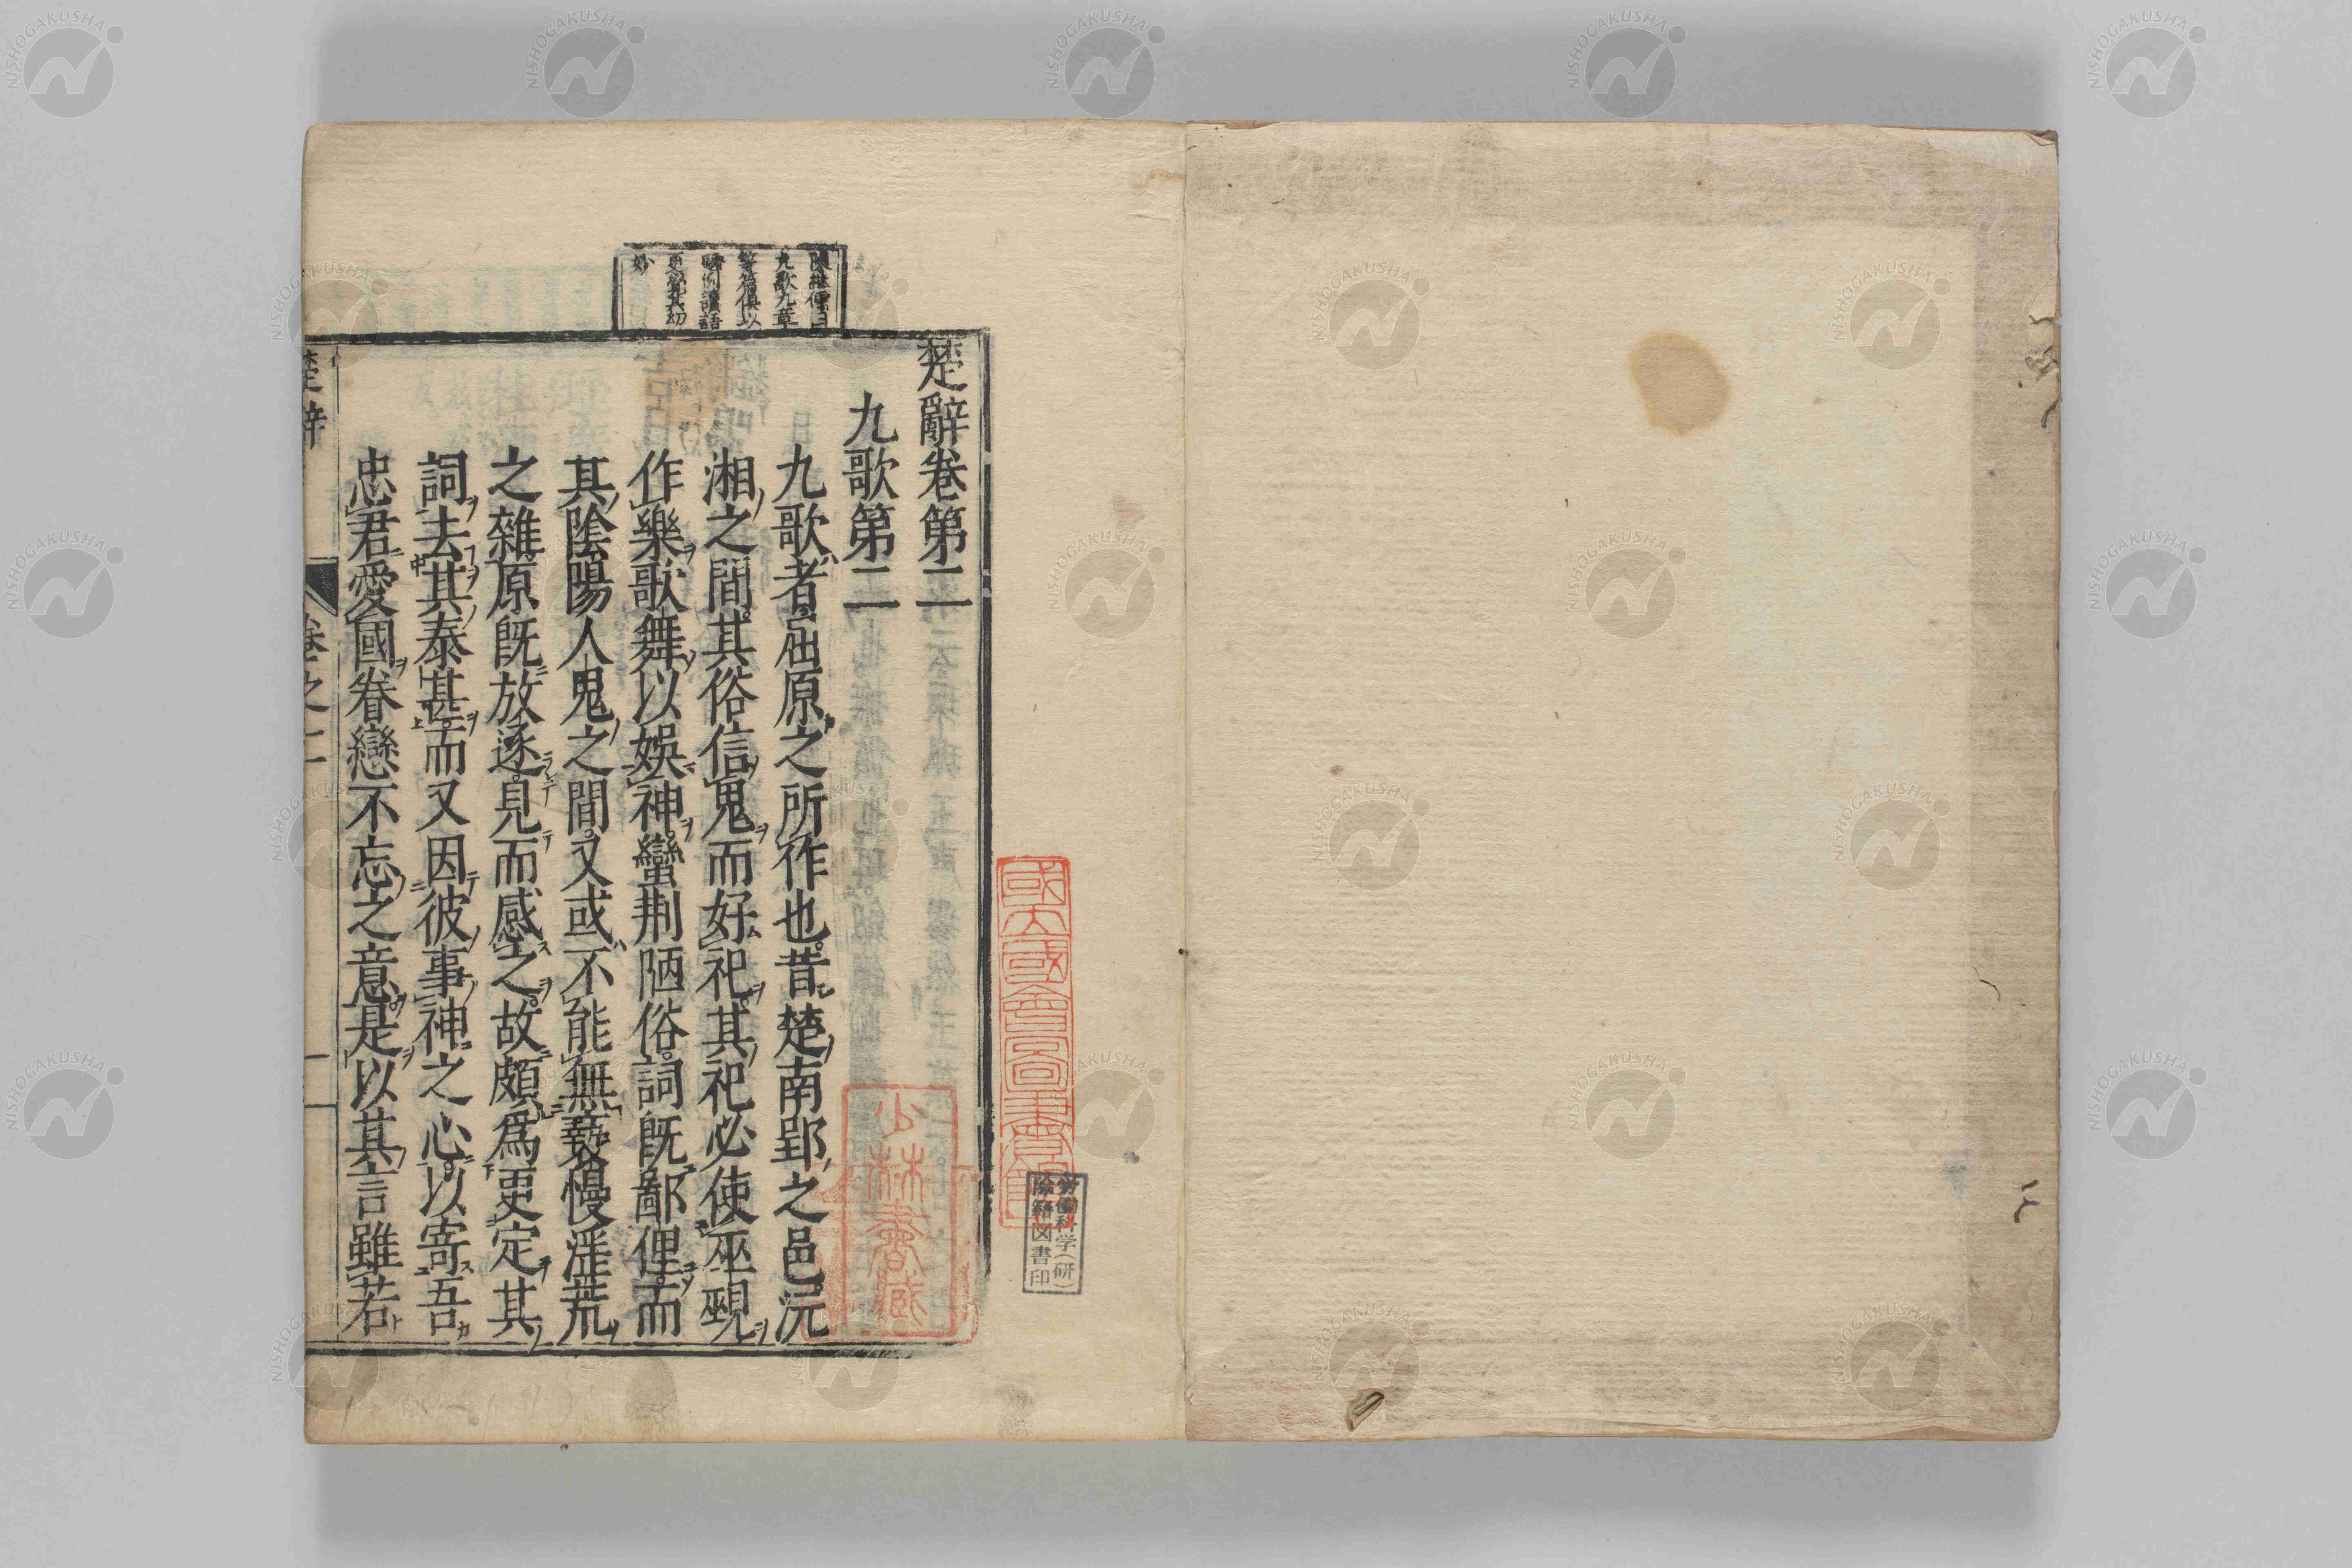 陳繼儒曰
九歌九章
等篇俱以
例讀語
更覺其
妙
楚辭卷第二
九歌第二
九歌者屈原之所作也。昔楚南郢之邑沅
湘之間。其俗信鬼而好祀。其祀必使巫覡
作樂歌舞以娛神。蠻荆陋俗。詞既鄙俚。而
其陰陽人鬼之間。又或不能無褻慢淫荒
之雜。原既放逐。見而感之。故頗爲更定其
詞。去其泰甚。而又因彼事神之心。以寄吾
忠君愛國眷戀不忘之意。是以其言雖若
楚辭 卷之二 一
國立國會圖書館
労働科学(研)
除籍図書印
NISHOGAKUSHA